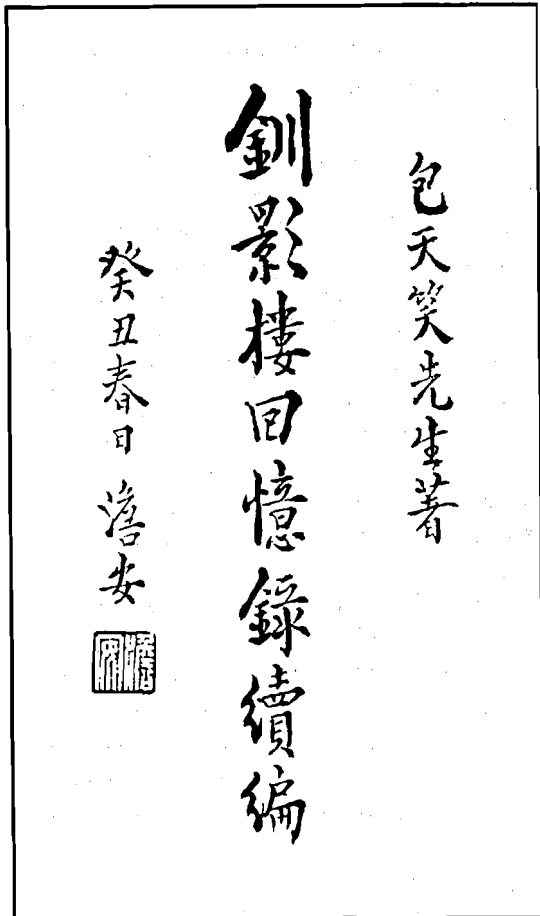 包天笑先生著
釧影樓回憶錄續編
癸丑春日 澹安
澹安